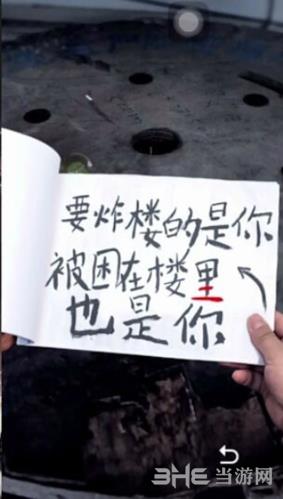 要炸楼的是你
被困在楼里
也是你
3HE 当游网